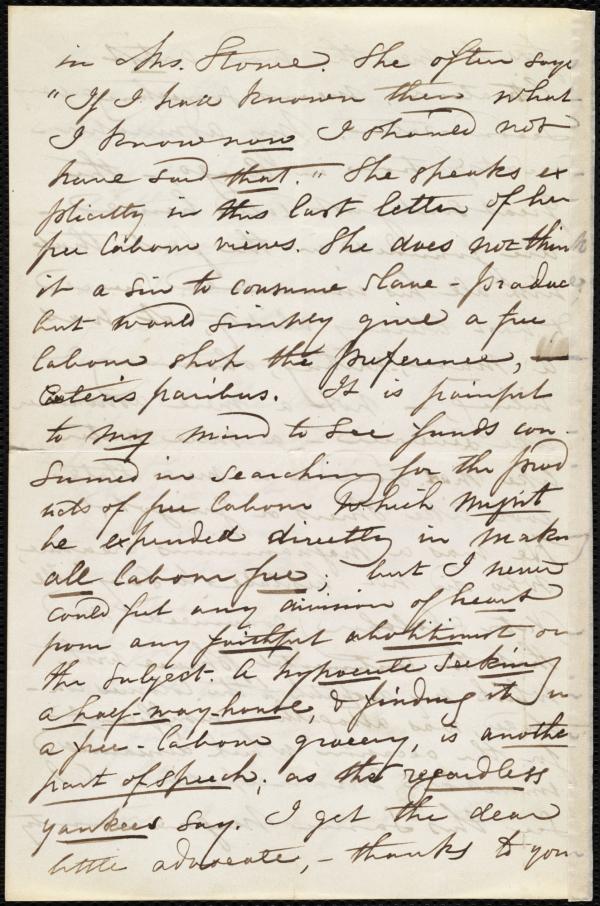 in Mrs. Stowe. She often says
"If I had known then what
I know now I should not
have said that." She speaks ex-
plicitly in this last letter of her
free labour views. She does not think
it a sin to consume slave-produce
but would simply give a free
labour shop the preference,
Cæteris paribus. It is painful
to my mind to see funds con-
sumed in searching for the prod
ucts of free labour which might
be expended directly in making
all labour free; but I never
could feel any division of heart
from any faithful abolitionist on
the subject. A hypocrite seeking
a half-way-house, & finding it in
a free-labour grocery, is another
part of speech, as the regardless
yankees say. I get the dear
little advocate, - thanks to your